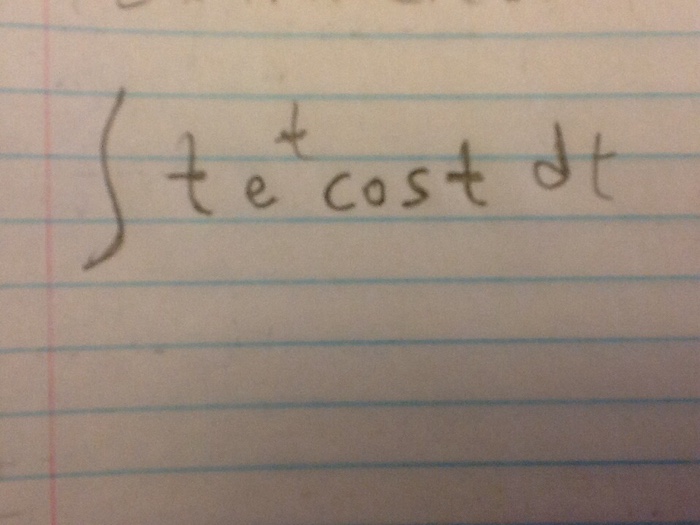 ∫ t e^t cos t dt